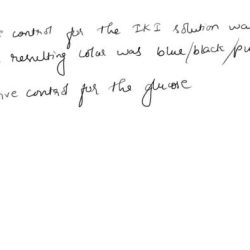 control for the IKI solution wa
resulting color was blue/black/pu
ive control for the glucose